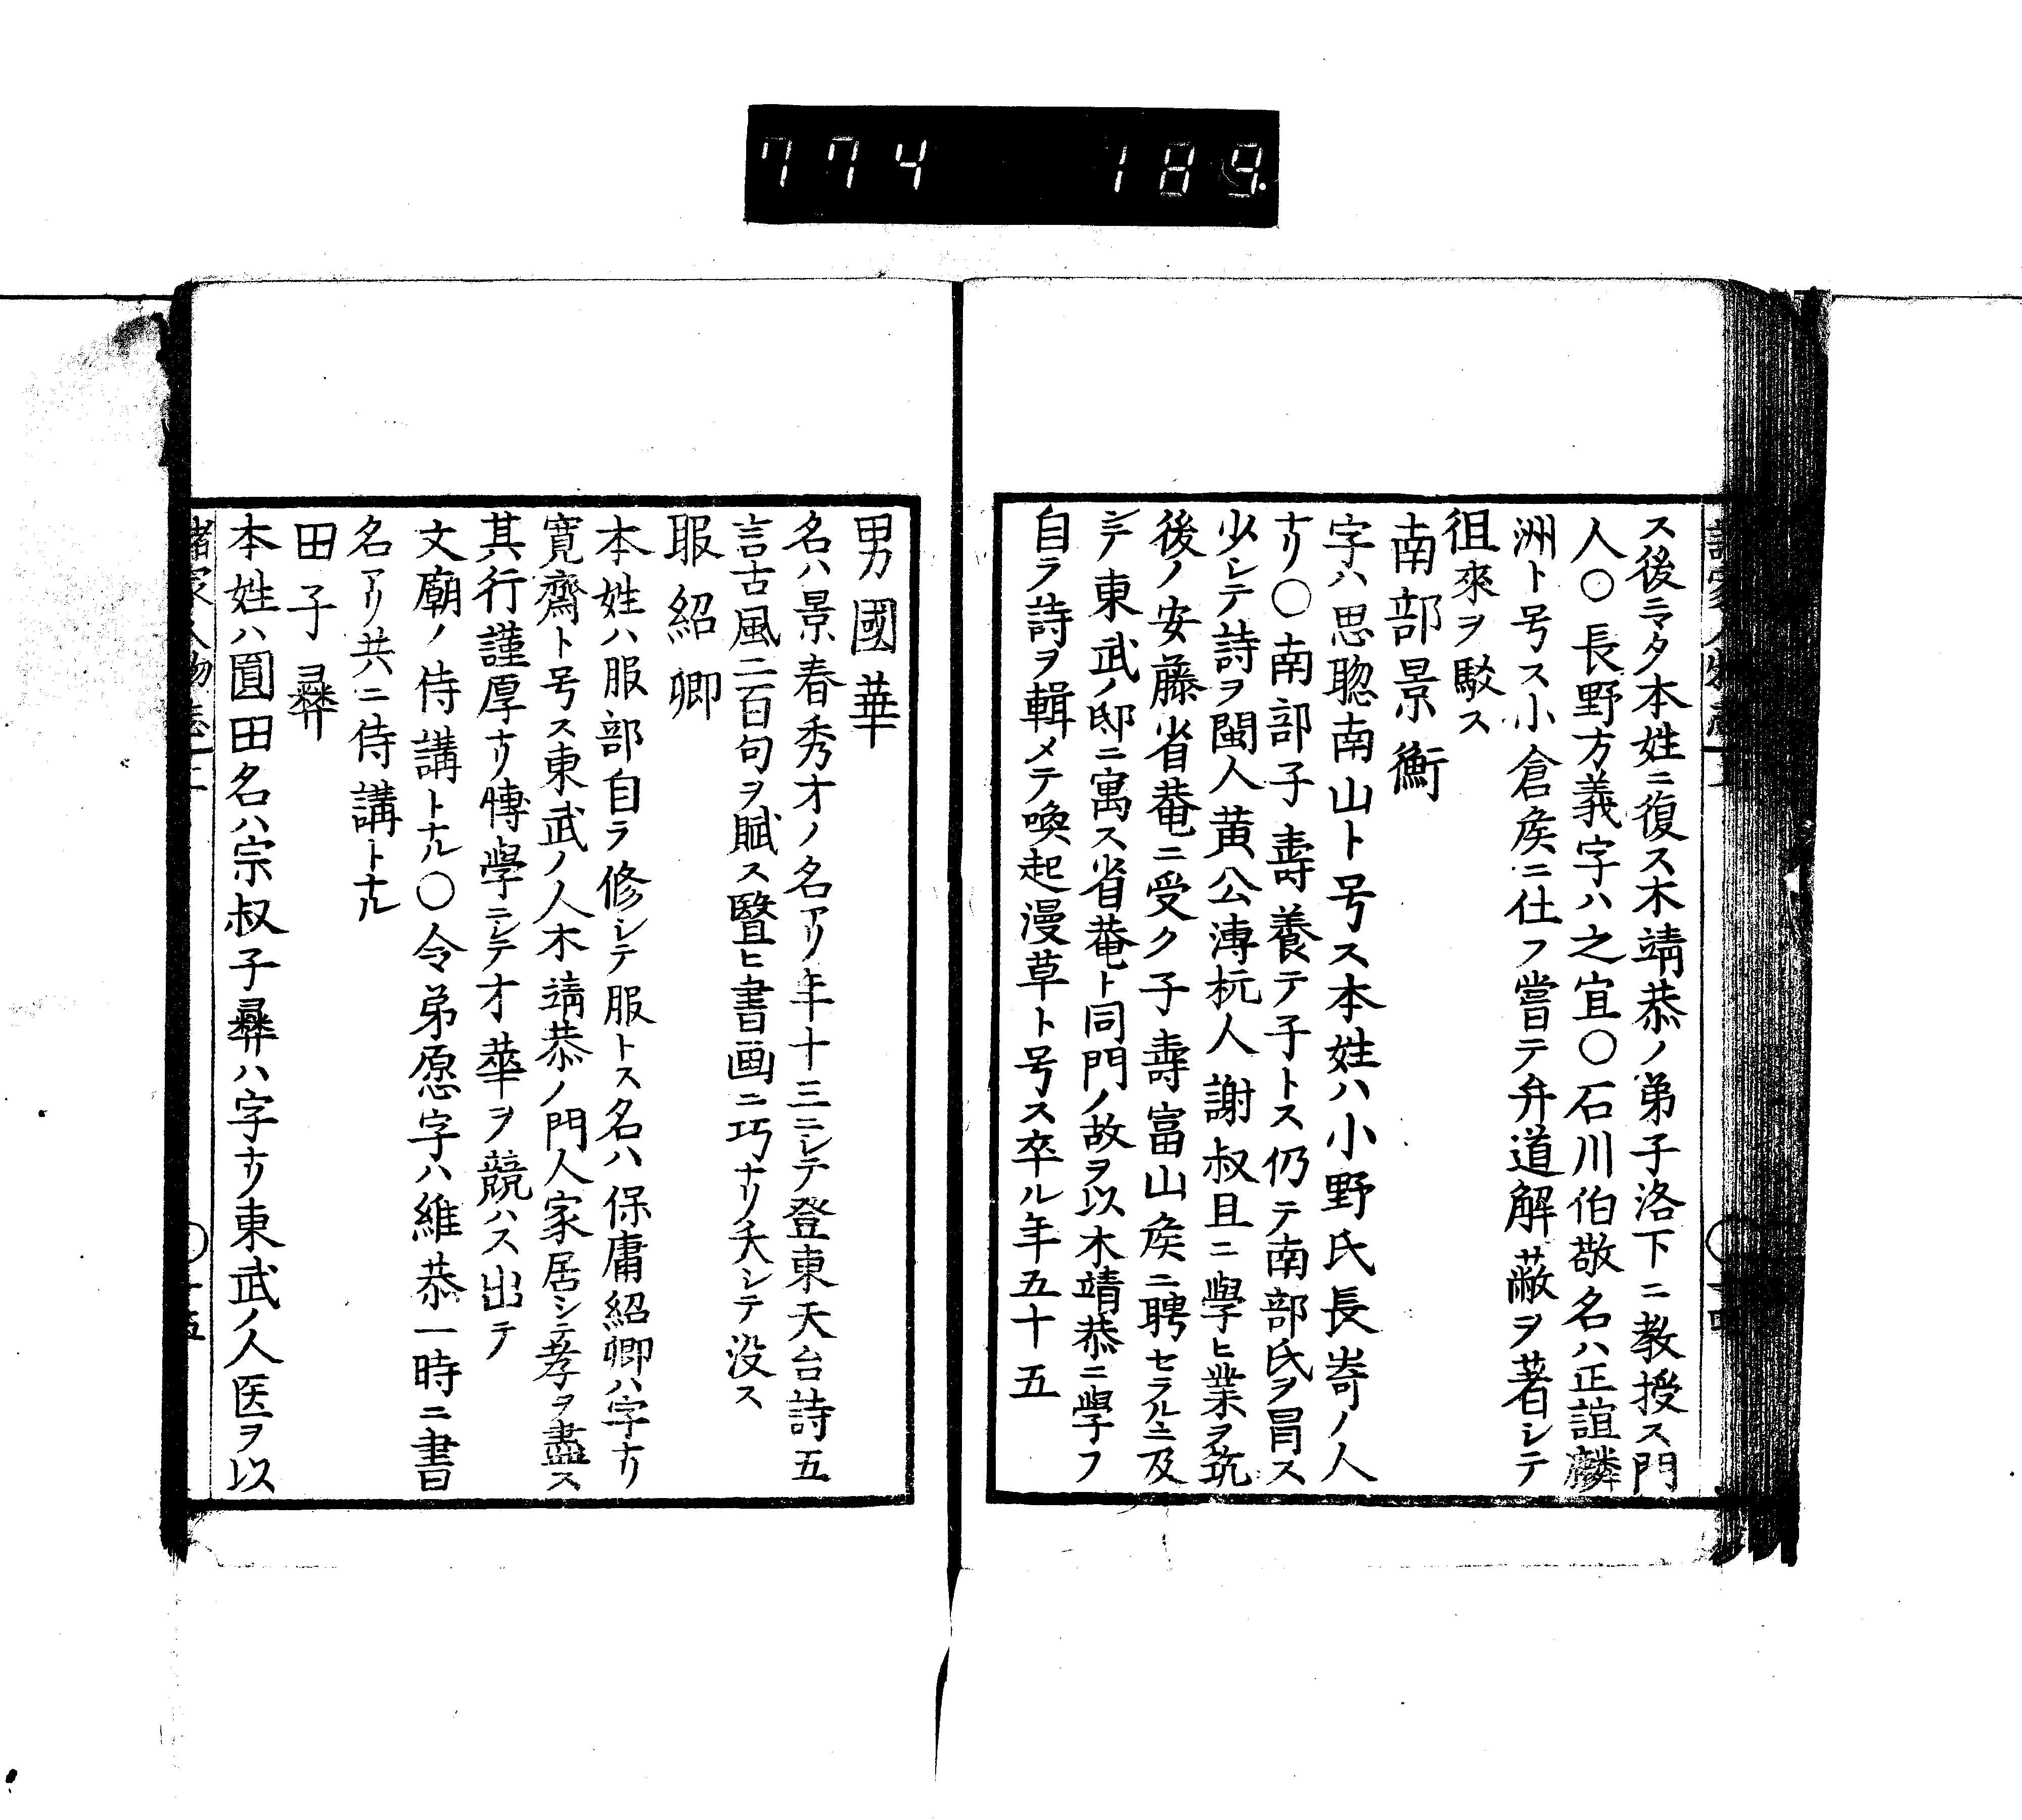 774 189
ス後ニマタ本姓ニ復ス木靖恭ノ弟子洛下ニ教授ス門
人〇長野方義字ハ之宜〇石川伯敬名ハ正誼麟
洲ト号ス小倉矦ニ仕フ嘗テ弁道解蔽ヲ著シテ
徂來ヲ駁ス
南部景衡
字ハ思聡南山ト号ス本姓ハ小野氏長嵜ノ人
ナリ〇南部子壽養テ子トス仍テ南部氏ヲ冐ス
少シテ詩ヲ閩人黄公溥杭人謝叔且ニ學ヒ業ヲ筑
後ノ安藤省菴ニ受ク子壽富山矦ニ聘セラルニ及
シテ東武ノ邸ニ寓ス省菴ト同門ノ故ヲ以木靖恭ニ學フ
自ラ詩ヲ輯メテ喚起漫草ト号ス卒ル年五十五
男國華
名ハ景春秀才ノ名アリ年十三ニシテ登東天台詩五
言古風二百句ヲ賦ス暨ヒ書画ニ巧ナリ夭シテ没ス
服紹卿
本姓ハ服部自ラ修シテ服トス名ハ保庸紹卿ハ字ナリ
寛齋ト号ス東武ノ人木靖恭ノ門人家居シテ孝ヲ盡ス
其行謹厚ナリ博學ニシテ才華ヲ競ハス出テ
文廟ノ侍講トナル〇令弟愿字ハ維恭一時ニ書
名アリ共ニ侍講トナル
田子彝
本姓ハ圓田名ハ宗叔子彝ハ字ナリ東武ノ人医ヲ以
諸家人物志 十五